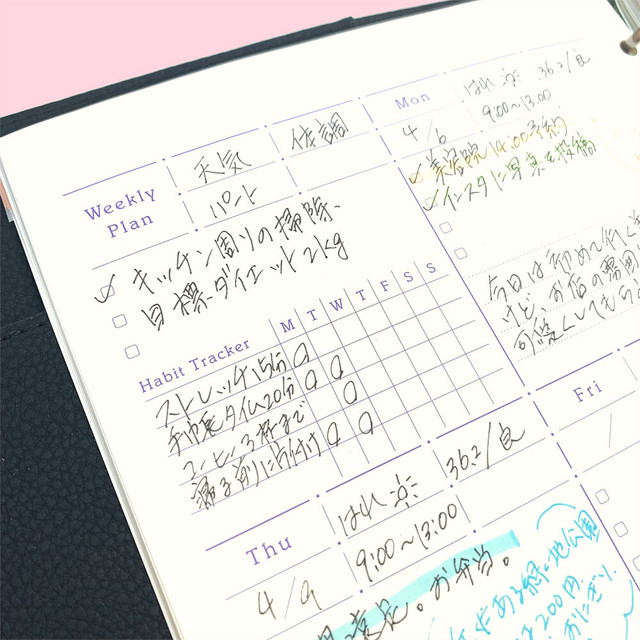 Weekly Plan
天気
体調
パント
キッチン周りの掃除、
目標ダイエット2kg
Habit Tracker
M T W T F S S
ストレッチ15分
手帳タイム20分
コーヒー3杯まで
寝る前に片付け
Mon
はれ 36.2/良
4/6
9:00~13:00
美容院14:00予約
インスタに写真を投稿
今日は初めて行く
けど、お店の雰囲
可愛くしてもら
Thu
はれ
36.2/良
4/9
9:00~13:00
お弁当。
ある緑地公園
200円
おにぎり
Fri